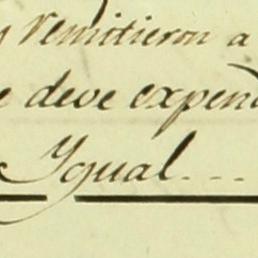 y remitieron a
e deve expen
Ygual...